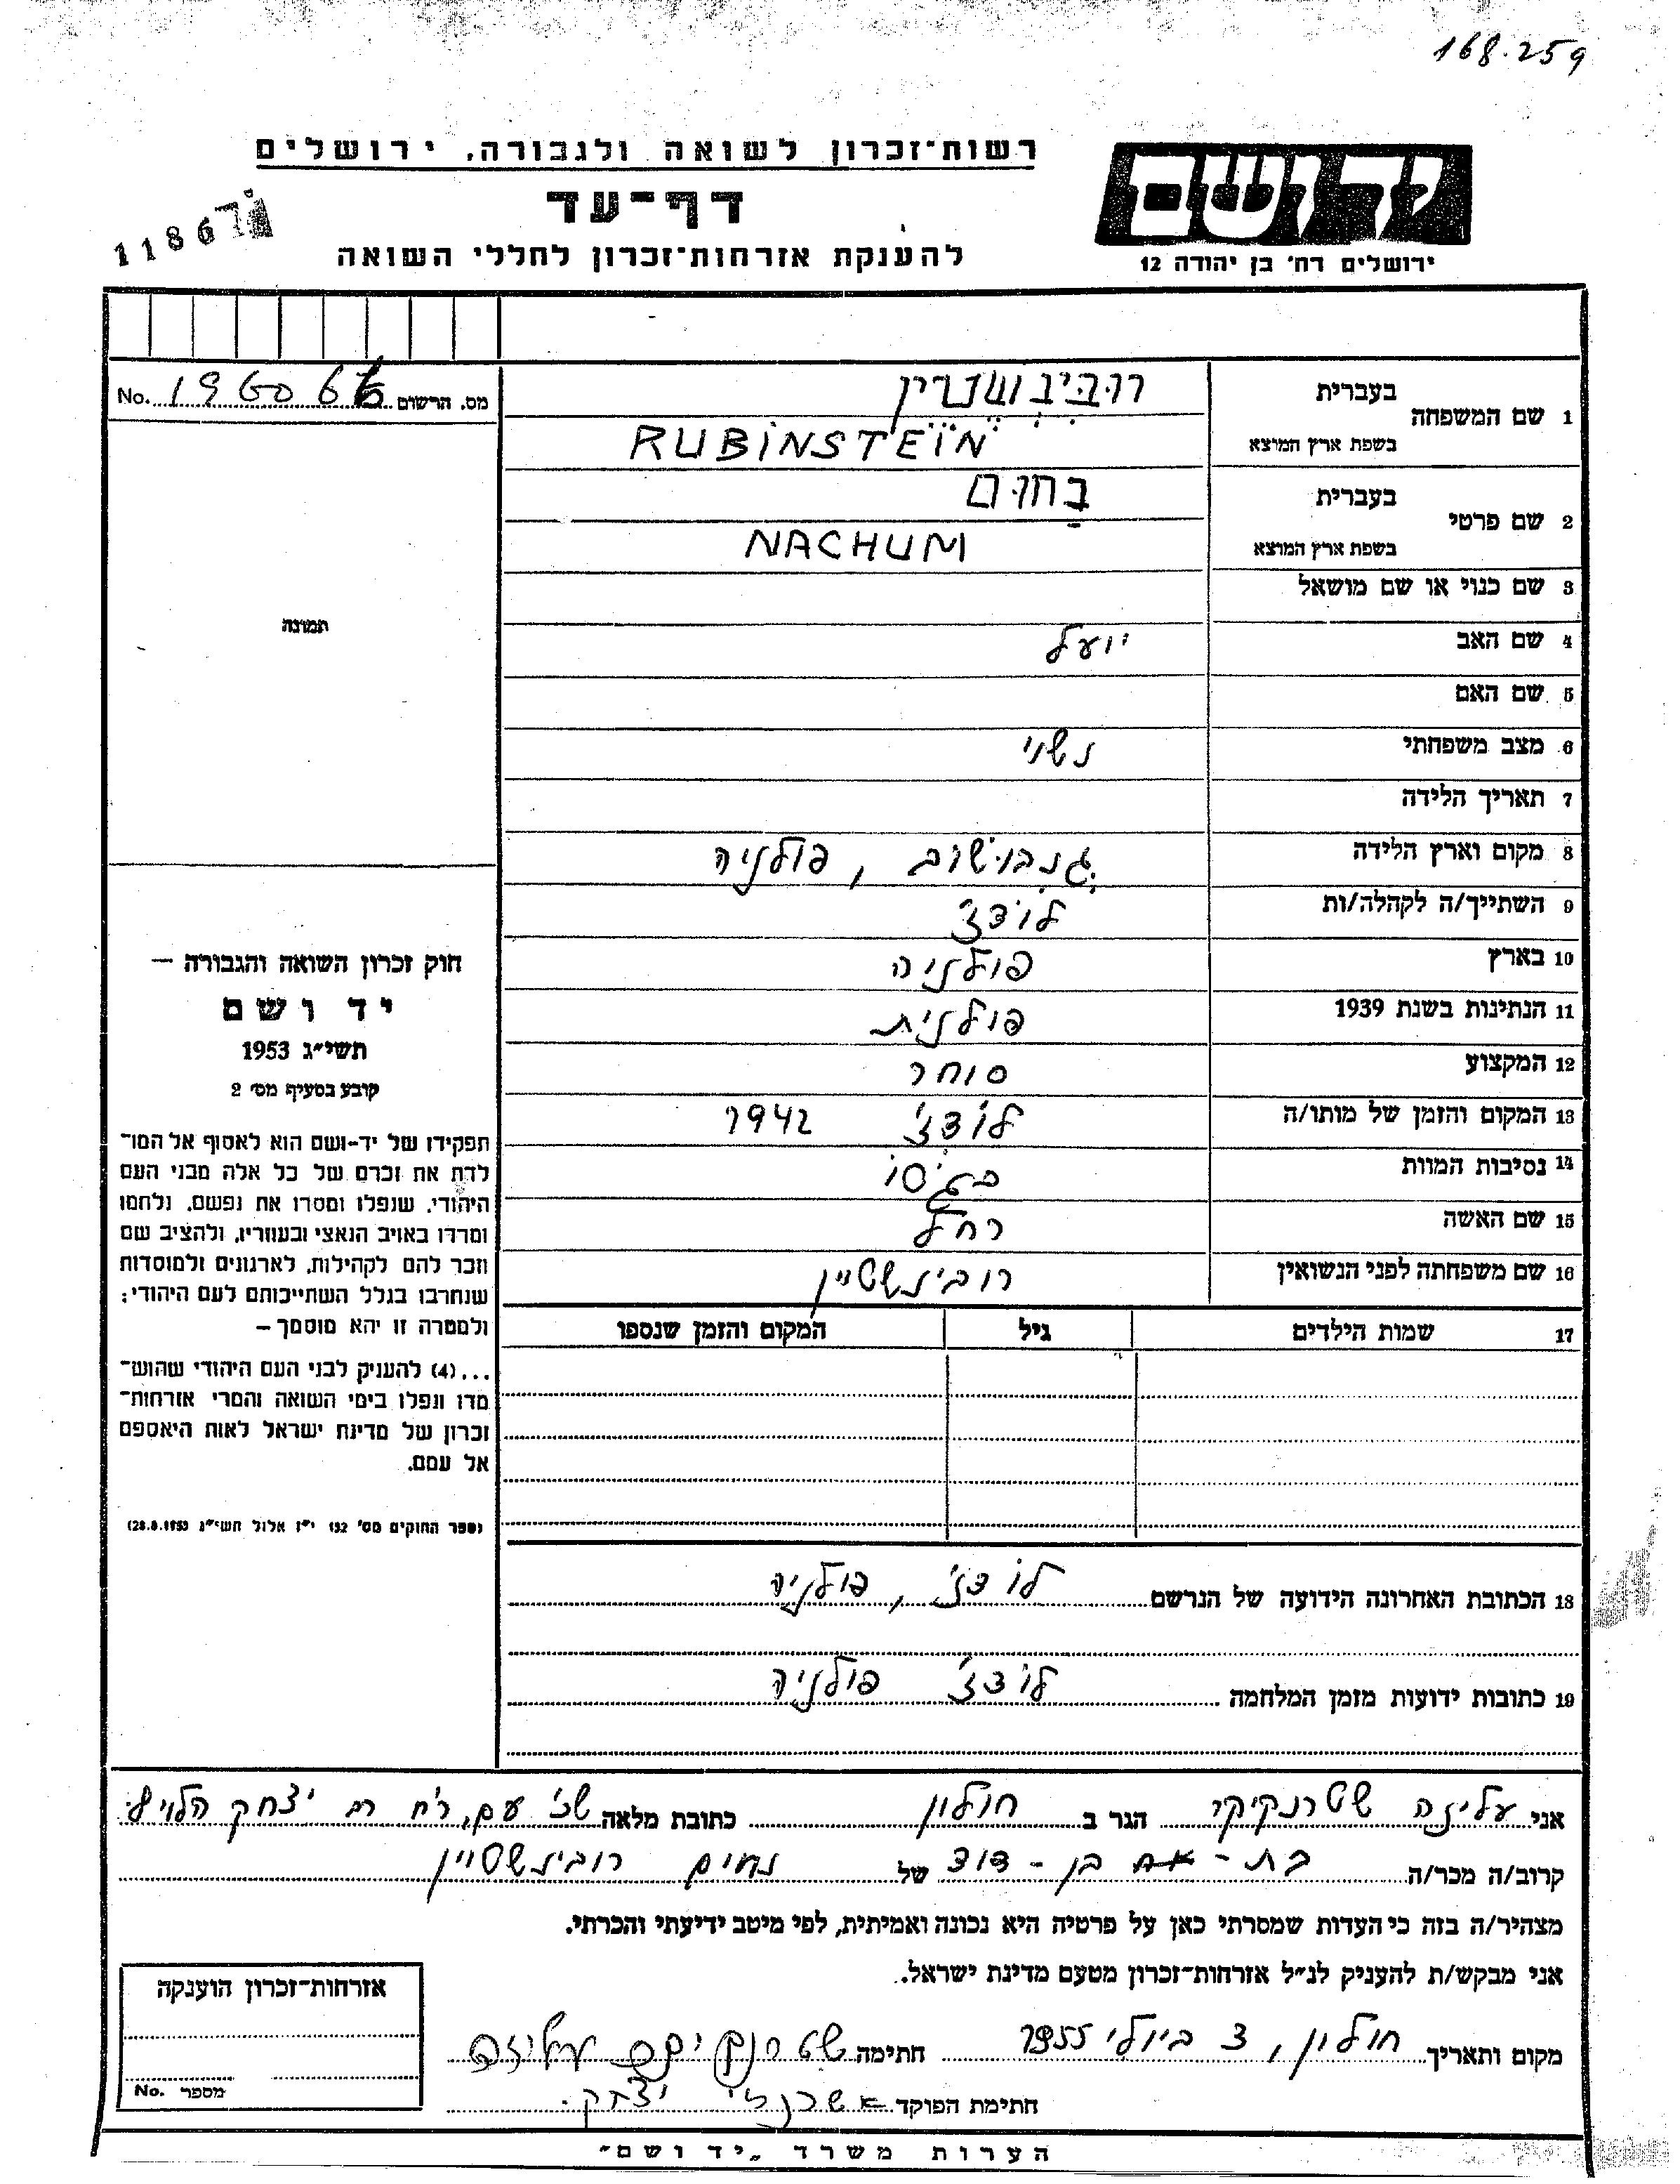 168.259
רשות־זכרון לשואה ולגבורה, ירושלים
יד ושם
דף־עד
11867
להענקת אזרחות־זכרון לחללי השואה
ירושלים רח' בן יהודה 12
מס. הרשום No. 196066
1 שם המשפחה בעברית רובינשטיין
בשפת ארץ המוצא RUBINSTEIN
2 שם פרטי בעברית נחום
בשפת ארץ המוצא NACHUM
3 שם כנוי או שם מושאל
תמונה
4 שם האב יועל
5 שם האם
6 מצב משפחתי נשוי
7 תאריך הלידה
8 מקום וארץ הלידה , פולניה
9 השתייך/ה לקהלה/ות לודצ'
10 בארץ פולניה
11 הנתינות בשנת 1939 פולנית
12 המקצוע סוחר
13 המקום והזמן של מותו/ה לודצ' 1942
14 נסיבות המוות בגיטו
15 שם האשה רחל
16 שם משפחתה לפני הנשואין רובינשטיין
17 שמות הילדים גיל המקום והזמן שנספו
חוק זכרון השואה והגבורה —
יד ושם
תשי״ג 1953
קובע בסעיף מס׳ 2
תפקידו של יד-ושם הוא לאסוף אל המו־
לדת את זכרם של כל אלה מבני העם
היהודי, שנפלו ומסרו את נפשם, נלחמו
ומרדו באויב הנאצי ובעוזריו, ולהציב שם
וזכר להם לקהילות, לארגונים ולמוסדות
שנחרבו בגלל השתייכותם לעם היהודי;
ולמטרה זו יהא מוסמך —
...(4) להעניק לבני העם היהודי שהוש־
מדו ונפלו בימי השואה והמרי אזרחות־
זכרון של מדינת ישראל לאות היאספם
אל עמם.
(ספר החוקים מס׳ 132 י״ז אלול תשי״ג 28.8.1953)
18 הכתובת האחרונה הידועה של הנרשם לודצ', פולניה
19 כתובות ידועות מזמן המלחמה לודצ' פולניה
אני עליזה הגר ב חולון כתובת מלאה שכ' עם, רח יצחק הלוי
קרוב/ה מכר/ה בת - אח בן - דוד של נחום רובינשטיין
מצהיר/ה בזה כי העדות שמסרתי כאן על פרטיה היא נכונה ואמיתית, לפי מיטב ידיעתי והכרתי.
אני מבקש/ת להעניק לנ״ל אזרחות־זכרון מטעם מדינת ישראל.
מקום ותאריך חולון, 3 ביולי 1955 חתימה עליזה
חתימת הפוקד יצחק
אזרחות־זכרון הוענקה
מספר No.
הערות משרד „יד ושם״